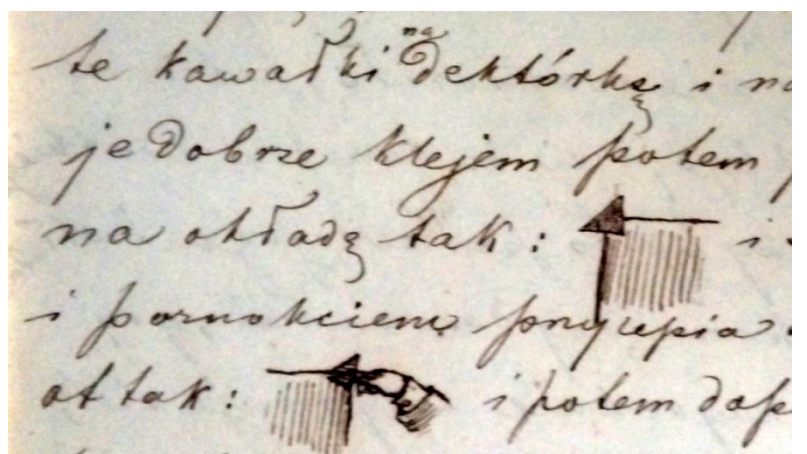 te kawałki na dektórkę i na
je dobrze klejem potem
na okładę tak: i
i paznokciem przylepia
ot tak: i potem